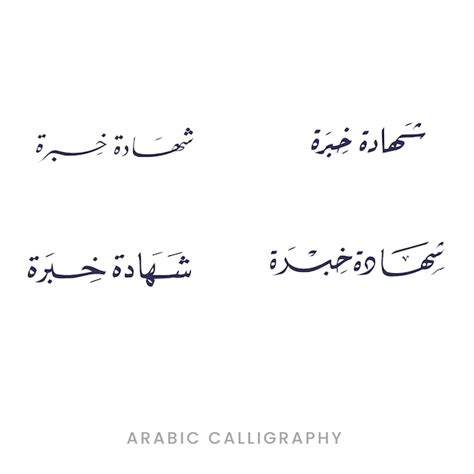 شهادة خبرة
شهادة خبرة
شهادة خبرة
شهادة خبرة
ARABIC CALLIGRAPHY